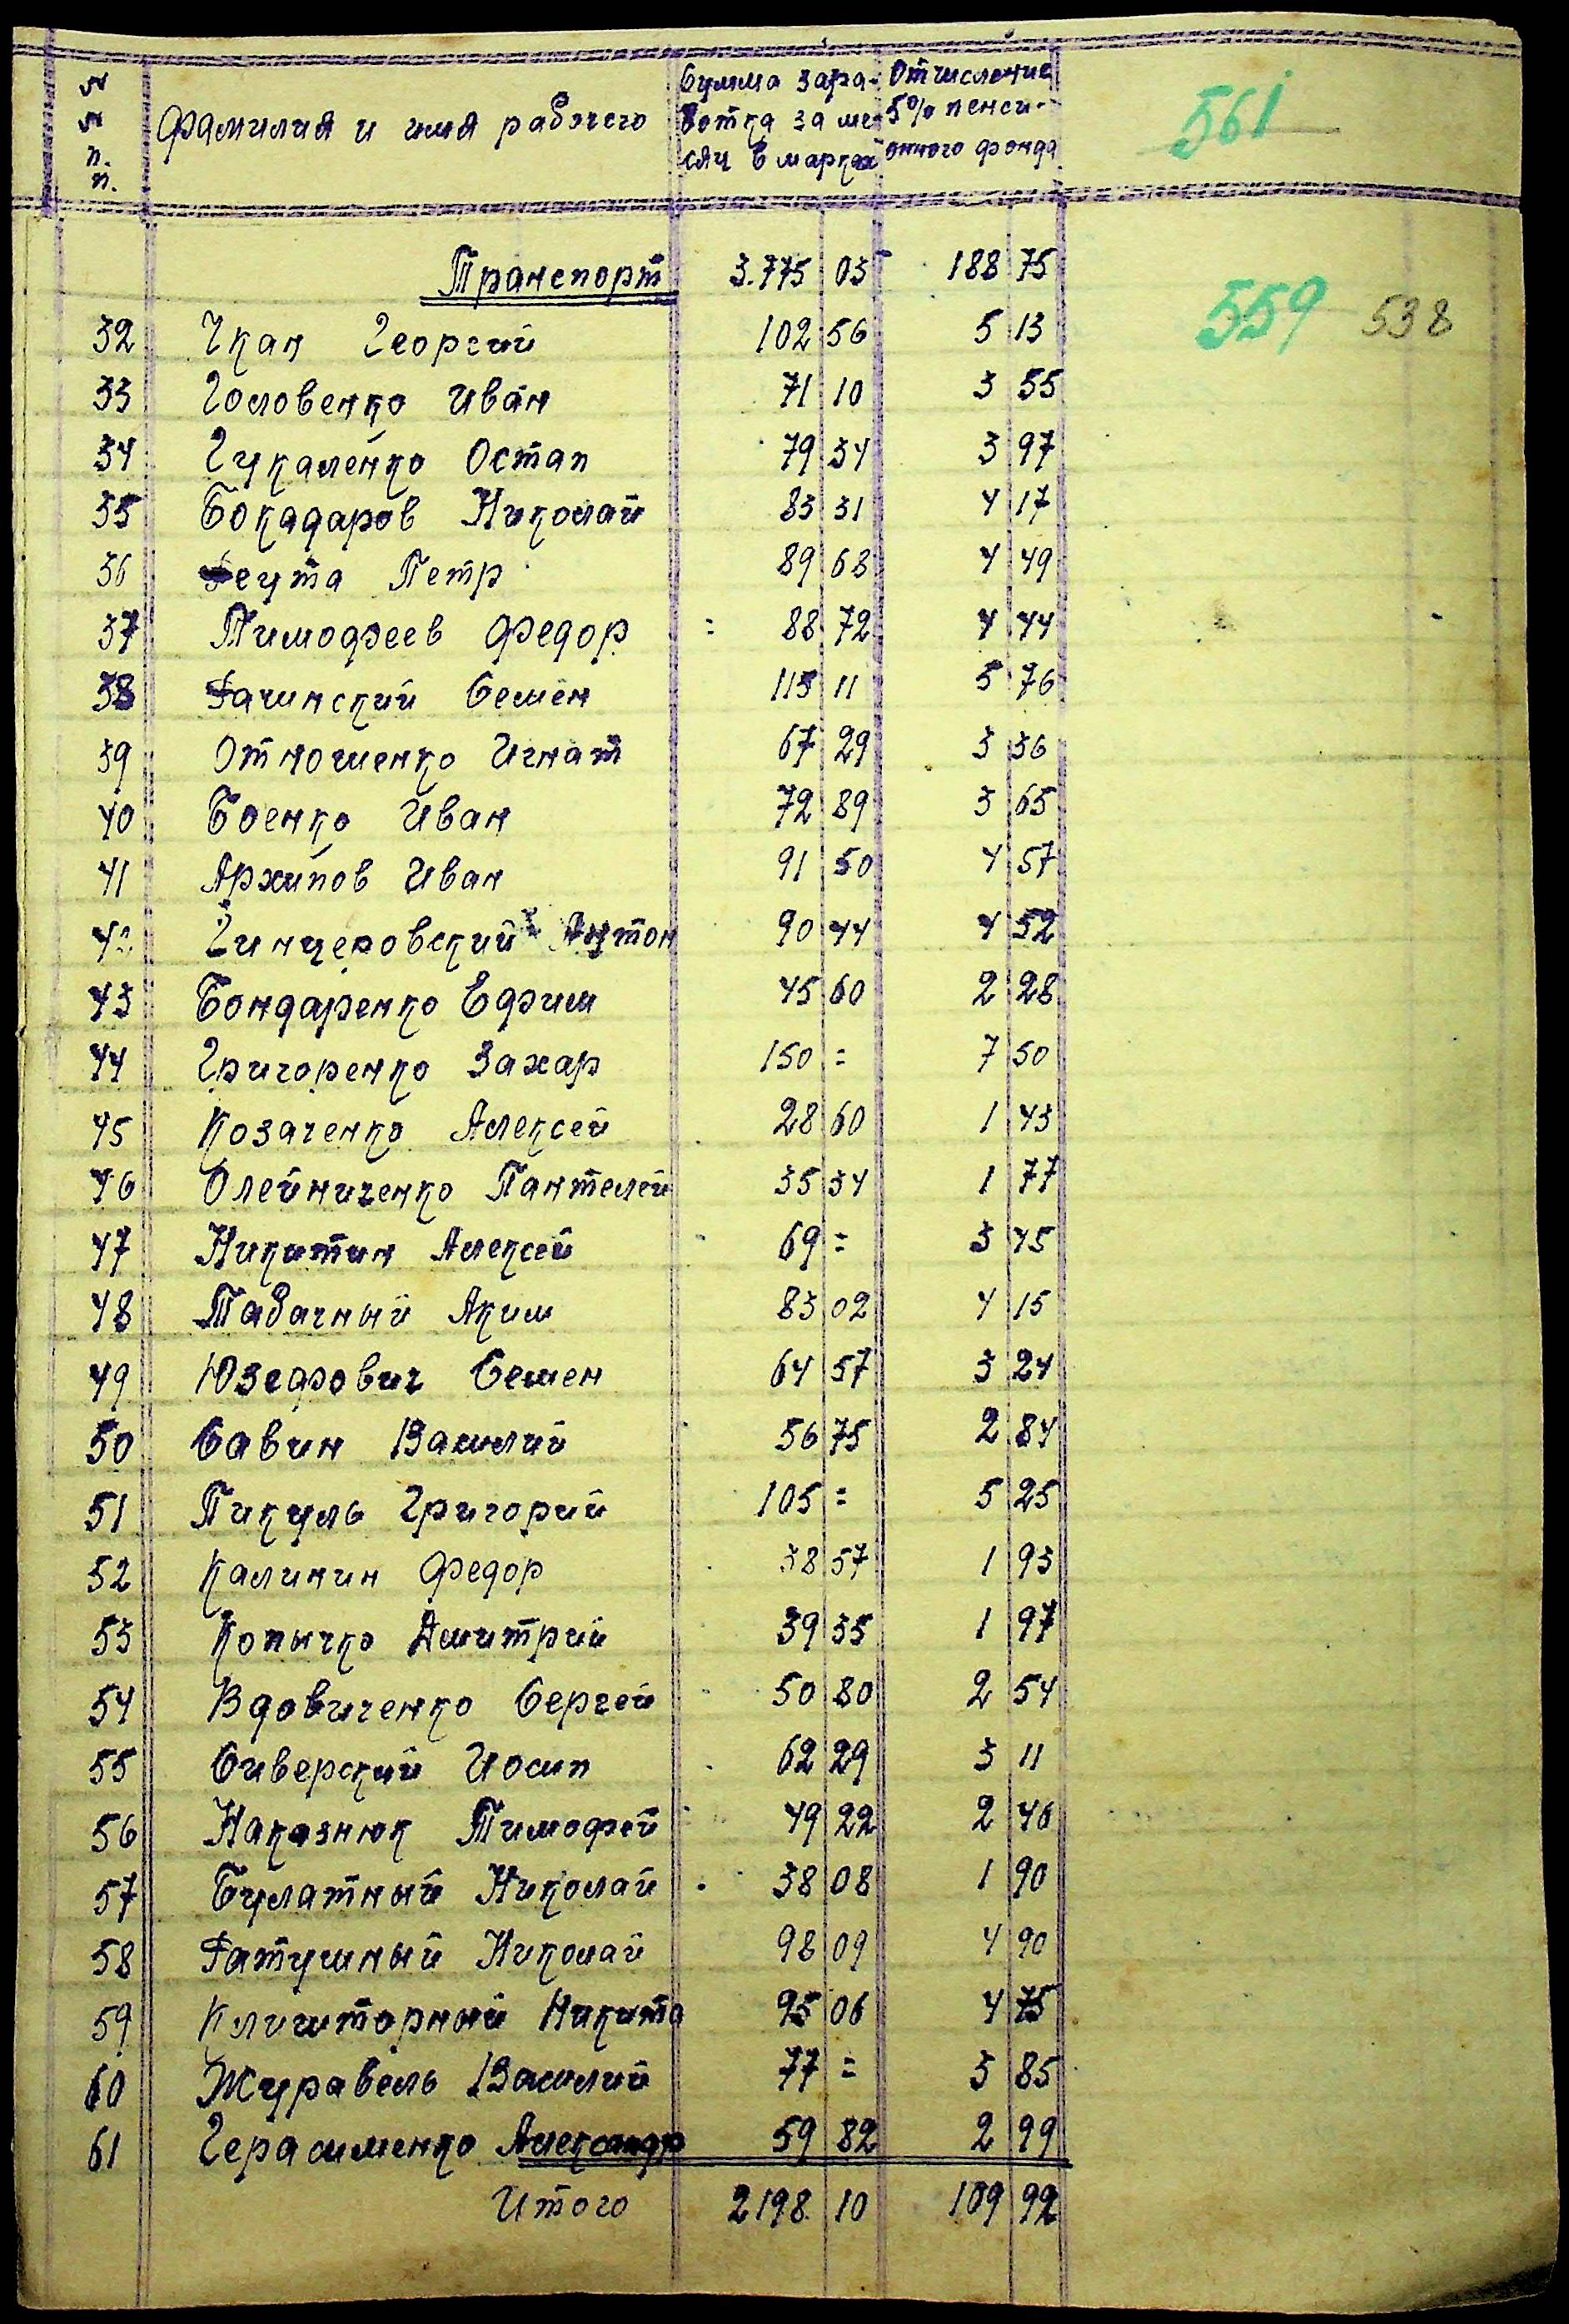 № № п. п. Фамилия и имя рабочего Сумма заработка за месяц в марках Отчисление 5% пенсионного фонда 561
Транспорт 3.775 03 188 75
559 538
32 Чкан Георгий 102 56 5 13
33 Головенко Иван 71 10 3 55
34 Гукаленко Остап 79 34 3 97
35 Бокадаров Николай 83 31 4 17
36 Реута Петр 89 68 4 49
37 Тимофеев Федор 88 72 4 44
38 Рачинский Семен 115 11 5 76
39 Отношенко Игнат 67 29 3 36
40 Боенко Иван 72 89 3 65
41 Архипов Иван 91 50 4 57
42 Гинцеровский Антон 90 44 4 52
43 Бондаренко Ефим 45 60 2 28
44 Григоренко Захар 150 = 7 50
45 Козаченко Алексей 28 60 1 43
46 Олейниченко Пантелей 35 34 1 77
47 Никитин Алексей 69 = 3 45
48 Табачный Аким 83 02 4 15
49 Юзефович Семен 64 57 3 24
50 Савин Василий 56 75 2 84
51 Пикуль Григорий 105 = 5 25
52 Калинин Федор 38 57 1 93
53 Копычко Дмитрий 39 35 1 97
54 Вдовиченко Сергей 50 80 2 54
55 Сиверский Иосип 62 29 3 11
56 Наказнюк Тимофей 49 22 2 46
57 Булатный Николай 38 08 1 90
58 Ратушный Николай 98 09 4 90
59 Клишторный Никита 95 06 4 75
60 Журавель Василий 77 = 3 85
61 Герасименко Александр 59 82 2 99
Итого 2198 10 109 92